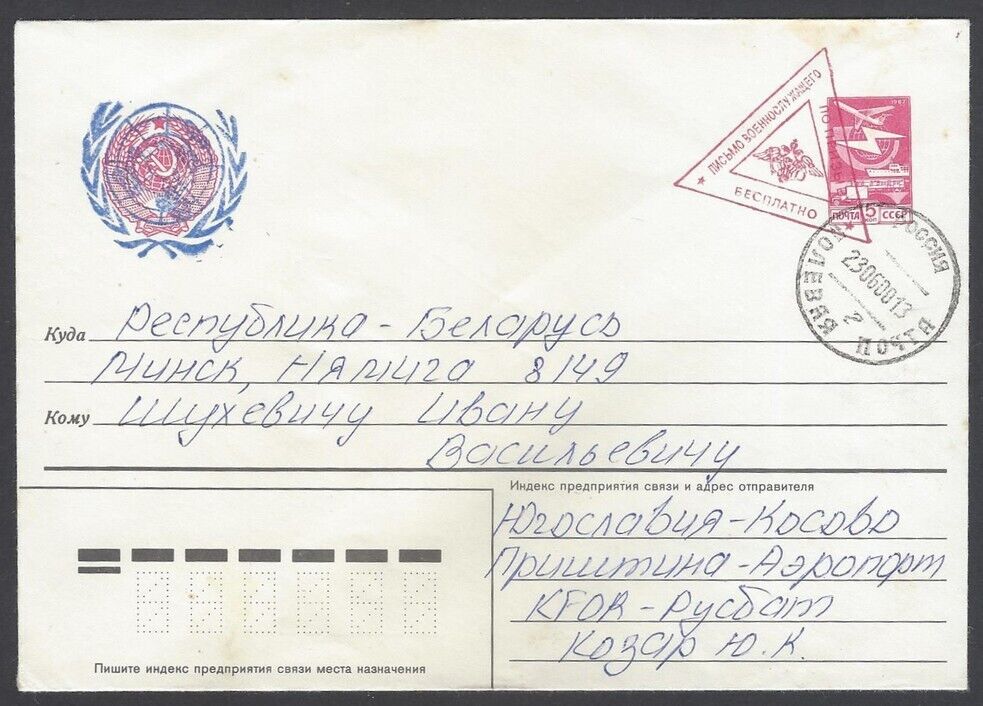 ПИСЬМО ВОЕННОСЛУЖАЩЕГО
БЕСПЛАТНО
1982
ПОЧТА 5 КОП СССР
РОССИЯ
23060013
2
Куда Республика - Беларусь
Минск, Нямига 8 149
Кому Шухевичу Ивану
Васильевичу
Индекс предприятия связи и адрес отправителя
Югославия - Косово
Приштина - Аэропорт
KFOR - Русбат
Козар Ю. К.
Пишите индекс предприятия связи места назначения